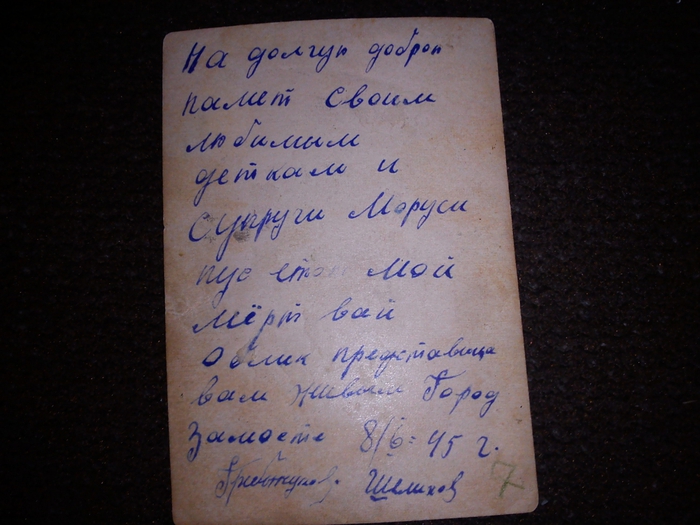 На долгую добрую
памет своим
любимым
деткам и
супруги Моруси
пус етот мой
мёрт вай
облик представица
вам живым Город
Замосте 8/6-45 г.
Шелихов
7